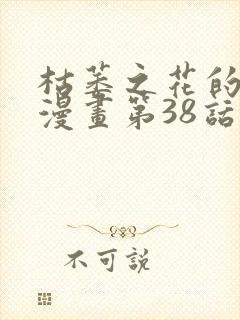 枯萎之花的
漫畫第38話
不可說